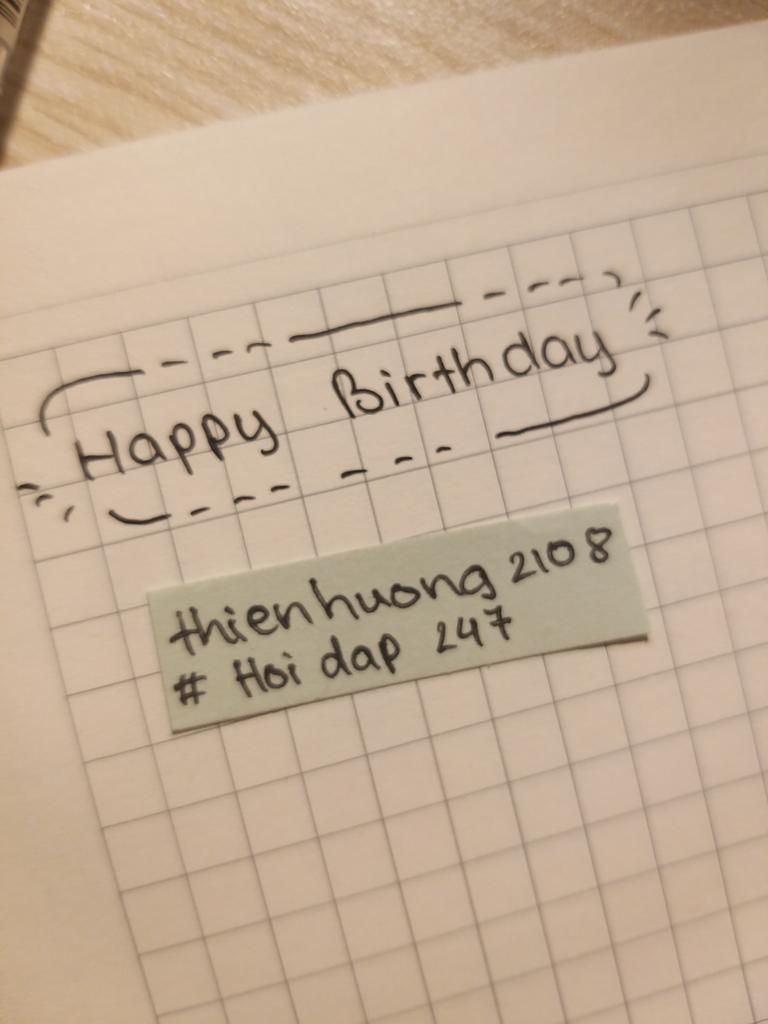 Happy Birthday
thienhuong 2108
# Hoi dap 247